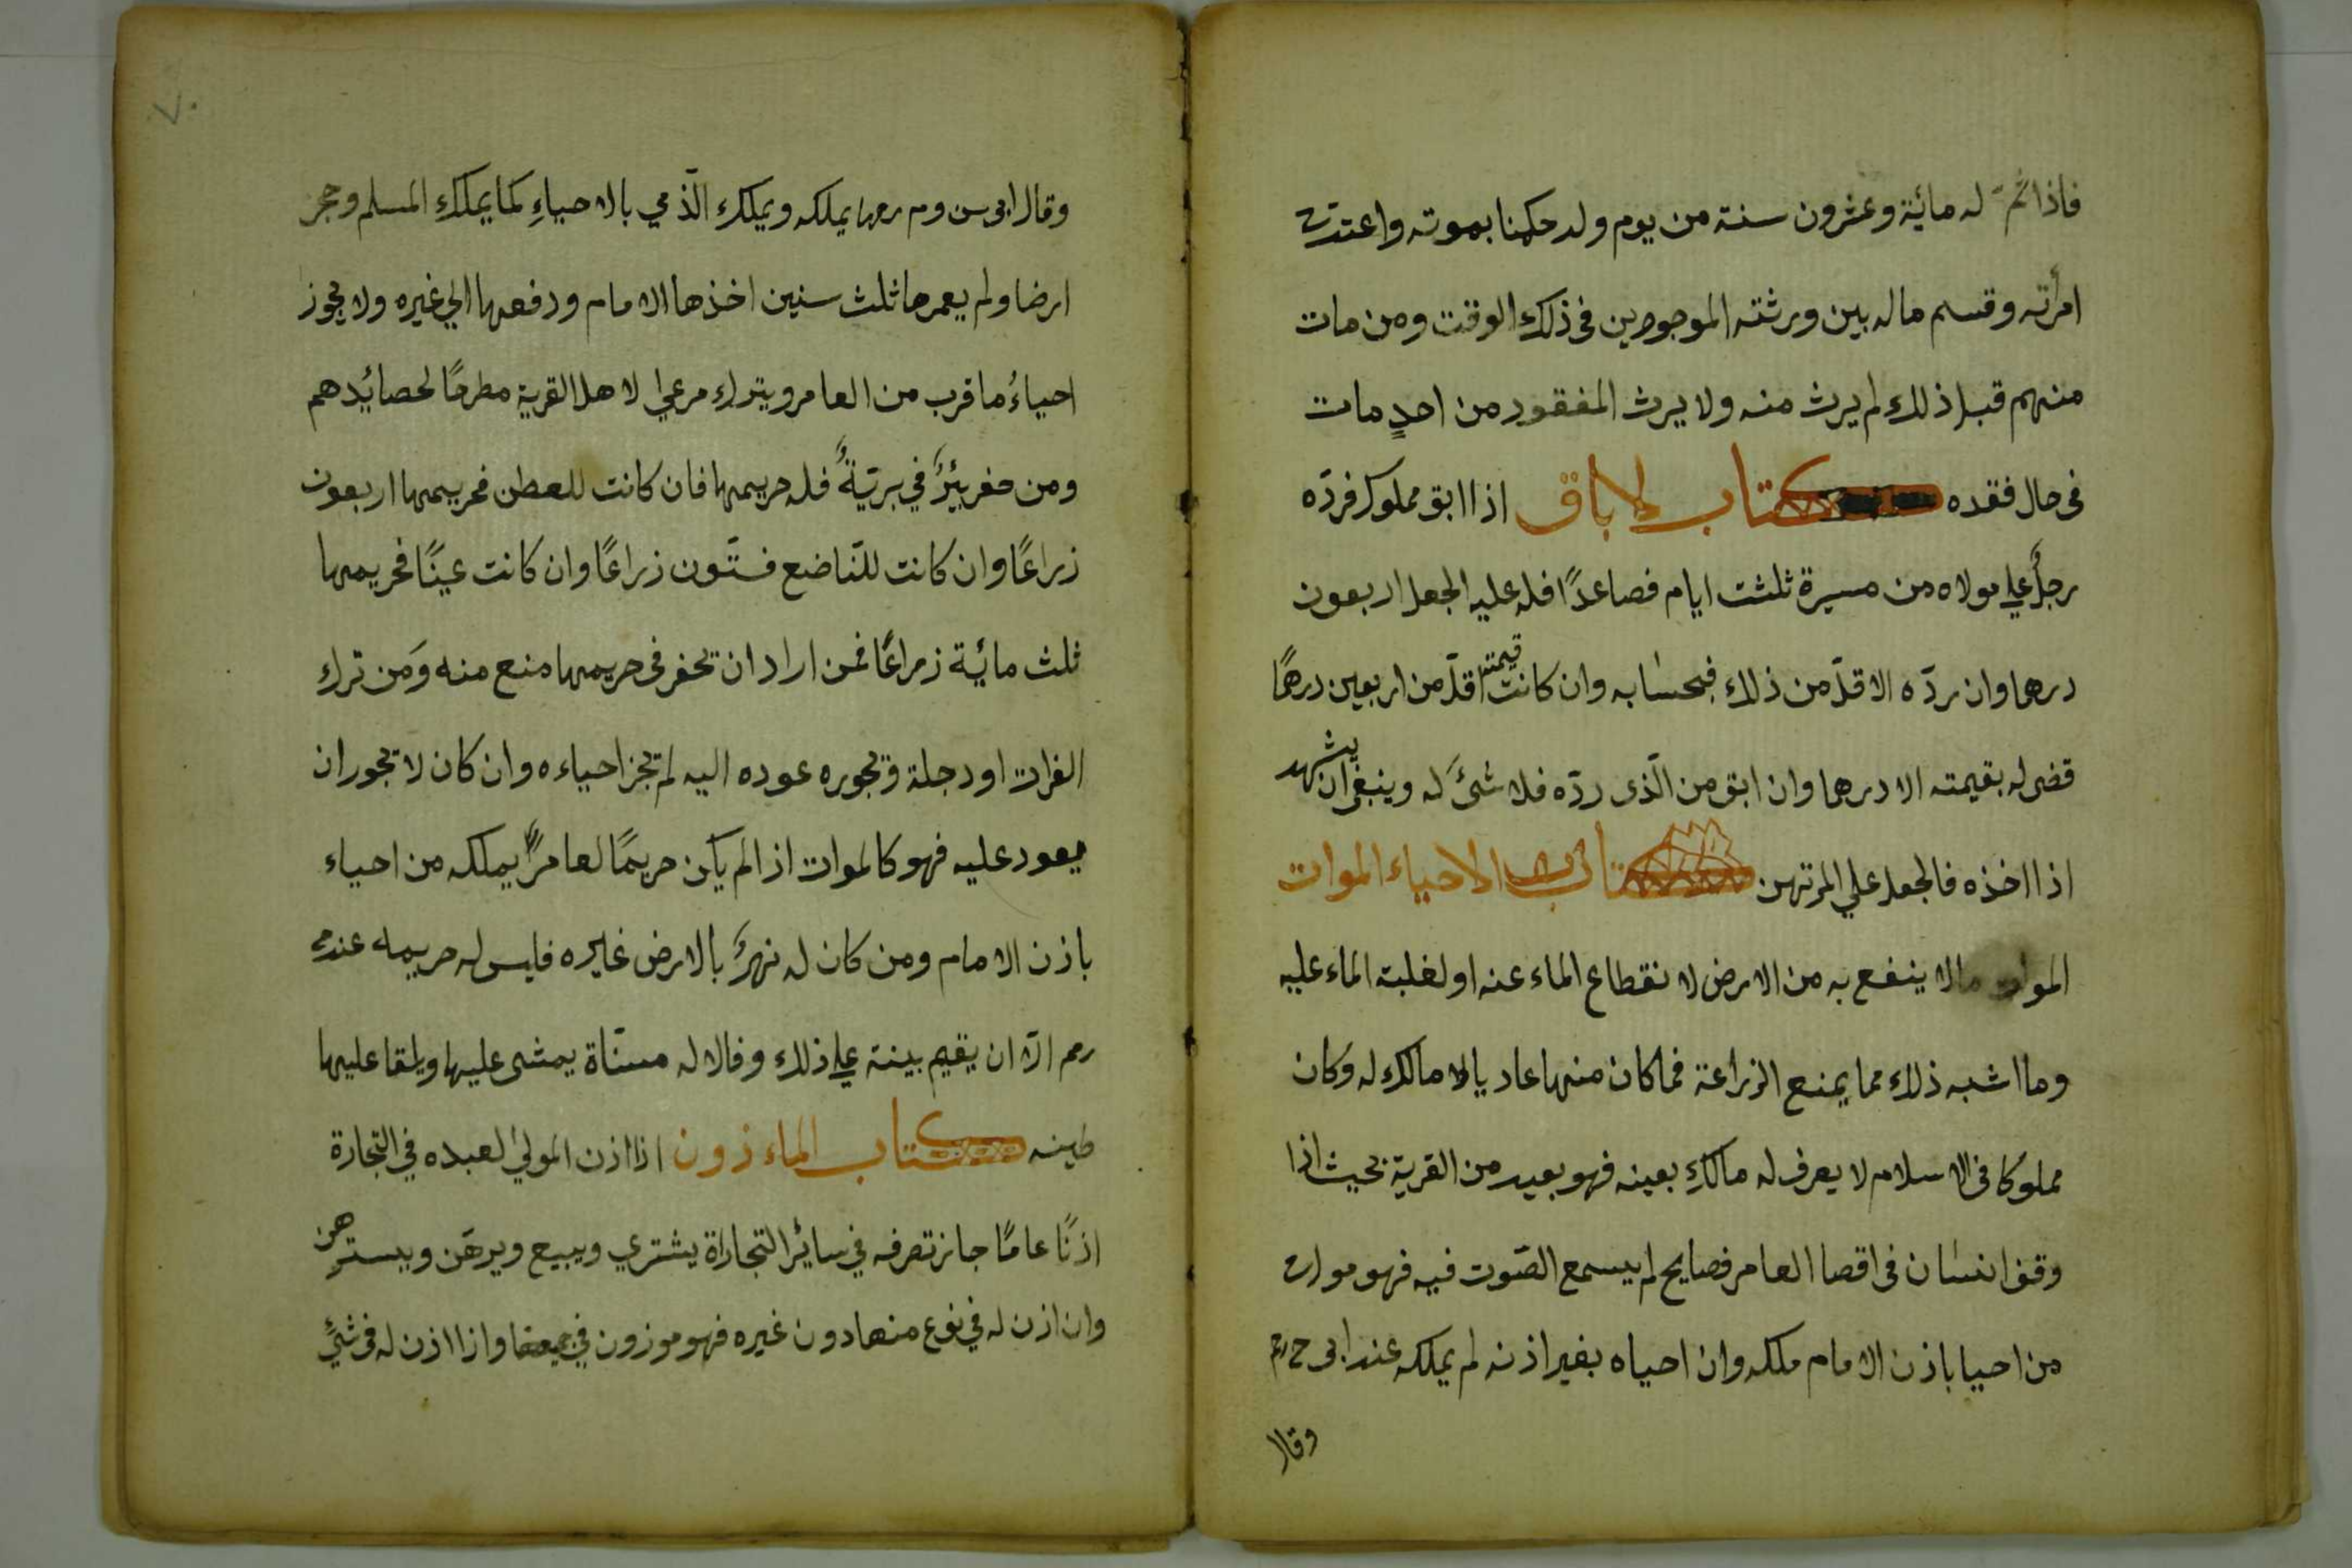 فاذا تمّ له مائية وعشرون سنة من يوم ولد حكمنا بموته واعتدت
امرأته وقسم ماله بين ورثته الموجودين فى ذلك الوقت ومن مات
منهم قبل ذلك لم يرث منه ولا يرث المفقود من احدٍ مات
فى حال فقده كتاب الاباق اذا ابق مملوك فردّه
رجلٌ علي مولاه من مسيرة ثلثت ايام فصاعدًا فله عليه الجعل اربعون
درهما وان ردّه الاقلّ من ذلك فبحسابه وان كانت قيمته اقلّ من اربعين درهمًا
قضى له بقيمته الا درهما وان ابق من الّذى ردّه فلا شئ له وينبغى ان يشهد
اذا اخذه فالجعل علي المرتهن كتاب الاحياء الموات
الموات مالا ينفع به من الارض لا نقطاع الماء عنه او لغلبة الماء عليه
وما اشبه ذلك مما يمنع الزراعة فما كان منها عاديا لا مالك له وكان
مملوكا فى الاسلام لا يعرف له مالكٍ بعينه فهو بعيد من القرية بحيث اذا
وقف انسان فى اقصا العامر فصايح لم يسمع الصّوت فيه فهو موات
من احيا باذن الامام ملكه وان احياه بغير اذنه لم يملكه عند ابى ح رح
وقال
٧٠
وقال ابى س وم رحهما يملكه ويملك الّذمي بالاحياءِ كما يملك المسلم وحجز
ارضا ولم يعمرها ثلث سنين اخذها الامام ودفعها الي غيره ولا يجوز
احياءُ ما قرب من العامر ويترك مرعي لاهل القرية مطرحًا لحصائدهم
ومن حفر بئرً في بريّةٍ فله حريمها فان كانت للعطن فحريمها اربعون
زراعًا وان كانت للنّاضع فستّون زراعًا وان كانت عينًا فحريمها
ثلث مائية زراعًا فمن اراد ان يحفر فى حريمها منع منه وَمن ترك
الفرات او دجلة ويجوره عوده اليه لم يجز احياءه وان كان لا يجور ان
يعود عليه فهو كالموات اذا لم يكن حريمًا لعامرٍ يملكه من احياء
باذن الامام ومن كان له نهرً بالارض غايره فليس له حريمه عندح
رحم الّا ان يقيم بينة علي ذلك وقالا له مسنّاة يمشى عليها ويلقا عليها
طينه كتاب الماءزون اذا اذن المولي لعبده في التجارة
اذنًا عامًا جاز تصرفه في سائر التجاراة يشتري ويبيع ويرهَن ويسترهن
وان اذن له في نوع منها دون غيره فهو موزون في جميعها واذا اذن له فى شئٍ